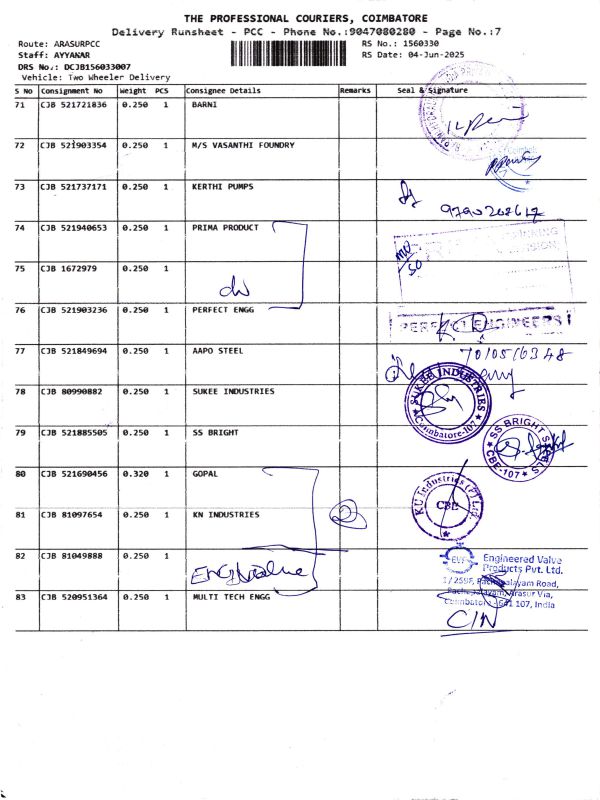 THE PROFESSIONAL COURIERS, COIMBATORE
Delivery Runsheet - PCC - Phone No.:9047080280 - Page No.:7
Route: ARASURPCC
RS No.: 1560330
Staff: AYYANAR
RS Date: 04-Jun-2025
DRS No.: DCJB156033007
Vehicle: Two Wheeler Delivery
S No Consignment No Weight PCS Consignee Details Remarks Seal & Signature
71 CJB 521721836 0.250 1 BARNI
72 CJB 521903354 0.250 1 M/S VASANTHI FOUNDRY
73 CJB 521737171 0.250 1 KERTHI PUMPS
74 CJB 521940653 0.250 1 PRIMA PRODUCT
75 CJB 1672979 0.250 1
76 CJB 521903236 0.250 1 PERFECT ENGG
PERFECT ENGINEERS
77 CJB 521849694 0.250 1 AAPO STEEL
78 CJB 80990882 0.250 1 SUKEE INDUSTRIES
SUKEE INDUSTRIES
Coimbatore-107
79 CJB 521885505 0.250 1 SS BRIGHT
SS BRIGHT STEELS
CBE-107
80 CJB 521690456 0.320 1 GOPAL
81 CJB 81097654 0.250 1 KN INDUSTRIES
KU Industries (P) Ltd.
CBE
82 CJB 81049888 0.250 1
Eng Valve
EVP
Engineered Valve
Products Pvt. Ltd.
83 CJB 520951364 0.250 1 MULTI TECH ENGG
Arasur Via,
Coimbatore - 641 107, India
C/N